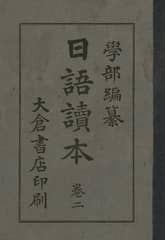 學部編纂
日語讀本
卷二
大倉書店印刷